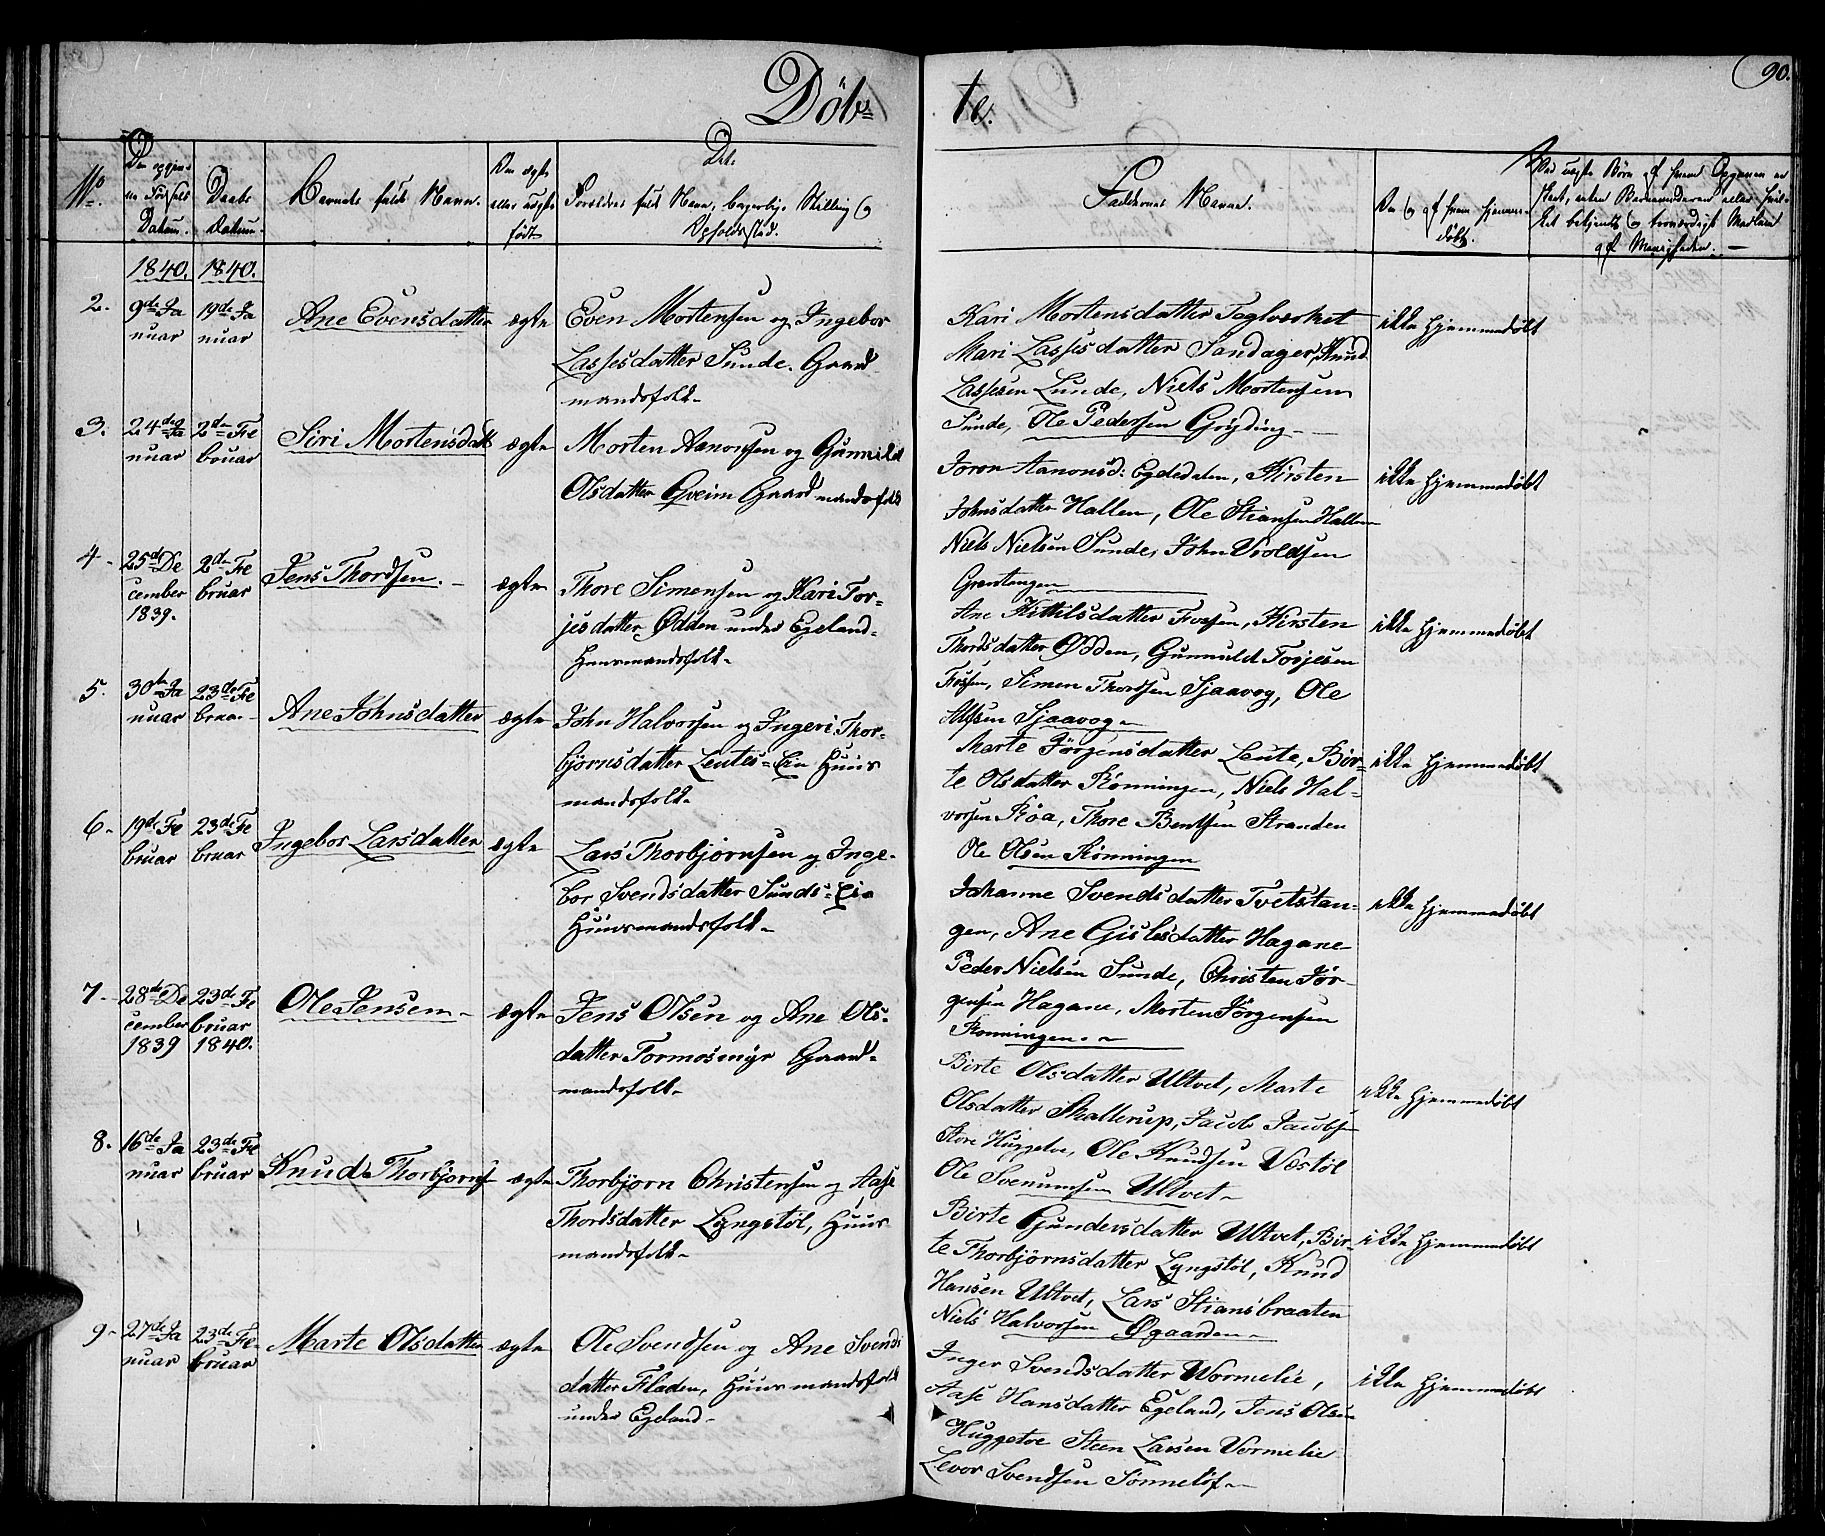 Døb=
te.
90.
No.
Datum.
Daabs
Datum.
Barnets fulde Navn.
Om ægte
eller uægte
født
Det.
Forældres fulde Navn, borgerlige Stilling og
Opholdssted.
Faddernes Navne.
døbt.
af Menigheden. —
1840. 1840.
2.
9de Ja
nuar
19de Ja
nuar
Ane Evensdatter
ægte
Even Mortensen og Ingebor
Lassesdatter Sunde. Gaard
mandsfolk-
Kari Mortensdatter Teglverket
Mari Lassesdatter Sandager, Knud
Lassesen Lunde, Niels Mortensen
Sunde, Ole Pedersen Gryding-
ikke hjemmedøbt
3.
24de Ja
nuar
2den Fe
bruar
Siri Mortensdatt
ægte
Morten Aanonsen og Gunnild
Olsdatter Gveim Gaardmandsfolk
Joron Aanonsd: Egdedalen, Kirsten
Johnsdatter Hallen, Ole Stiansen Hallen
Niels Nielsen Sunde, John Vroldsen
Grantangen
ikke hjemmedøbt
4-
25de De
cember
1839.
2den Fe
bruar
Jens Thordsen.-
ægte
Thore Simensen og Kari Tor=
jesdatter Odden under Egeland-
Huusmandsfolk-
Ane Kittilsdatter Fossen, Kirsten
Thordsdatter Odden, Gunnuld Torjesen
Fossen, Simen Thordsen Sjaavog, Ole
Alfsen Sjaavog-
ikke hjemmedøbt
5.
30te Ja
nuar
23de Fe
bruar-
Ane Johnsdatter
ægte
John Halvorsen og Ingeri Thor-
bjørnsdatter Lentes=Eie Huus
mandsfolk-
Marte Jørgensdatter Lente, Bør=
te Olsdatter Rønningen, Niels Hal-
vorsen Røa, Thore Bentsen Stranden
Ole Olsen Rønningen
ikke hjemmedøbt
6-
19de Fe
bruar
23de Fe
bruar
Ingebor Larsdatter
ægte
Lars Thorbjørnsen og Inge-
bor Svendsdatter Sunds=Eie
Huusmandsfolk-
Johanne Svendsdatter Tvetstan=
gen, Ane Gislesdatter Hagane-
Peder Nielsen Sunde, Christen Jør-
gensen Hagane, Morten Jørgensen
Rønningen.-
ikke hjemmedøbt
7-
28de De
cember
1839
23de Fe
bruar
1840.
Ole Jensen-
ægte
Jens Olsen og Ane Ols-
datter Tormosmyr Gaard-
mandsfolk-
Birte Olsdatter Ultvet, Marte
Olsdatter Skallerup, Jacob Jacobs-
Store Huggetve, Ole Knudsen Vestøl
Ole Svenumsen Ultvet-
ikke hjemmedøbt
8-
16de Ja
nuar
23de Fe
bruar
Knud Thorbjørns
ægte
Thorbjørn Christensen og Aase
Thordsdatter Lyngstøl, Huus
mandsfolk-
Birte Gundersdatter Ultvet, Bir-
te Thorbjørnsdatter Lyngstøl, Knud
Hansen Ultvet, Lars Stiansbraaten
Niels Halvorsen Øgaarden-
ikke hjemmedøbt
9-
27de Ja
nuar
23de Fe-
bruar
Marte Olsdatter
ægte
Ole Svendsen og Ane Svends
datter Fladen, Huusmandsfolk
under Egeland-
Inger Svendsdatter Vormelie,
Aase Hansdatter Egeland, Jens Olsen
Huggetve Steen Larsen Vormelie
Levor Svendsen Sønneløs-
ikke hjemmedøbt